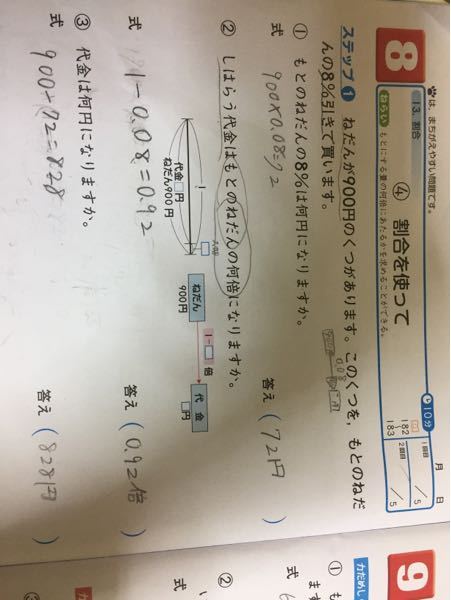 8
は、まちがえやすい問題です。
13. 割合
④ 割合を使って
ねらい もとにする量の何倍にあたるかを求めることができる。
月 日
10分
1回目 /5
2回目 /5
182
183
ステップ ① ねだんが900円のくつがあります。このくつを、もとのねだ
んの8%引きで買います。
① もとのねだんの8%は何円になりますか。
式 900×0.08=72
答え ( 72円 )
② しはらう代金はもとのねだんの何倍になりますか。
1
代金□円
ねだん900円
ねだん
900円
1-□ 倍
代金
□円
式 1-0.08=0.92
答え ( 0.92倍 )
③ 代金は何円になりますか。
式 900-72=828
答え ( 828円 )
9
力だめし
①
ます
式
②
式